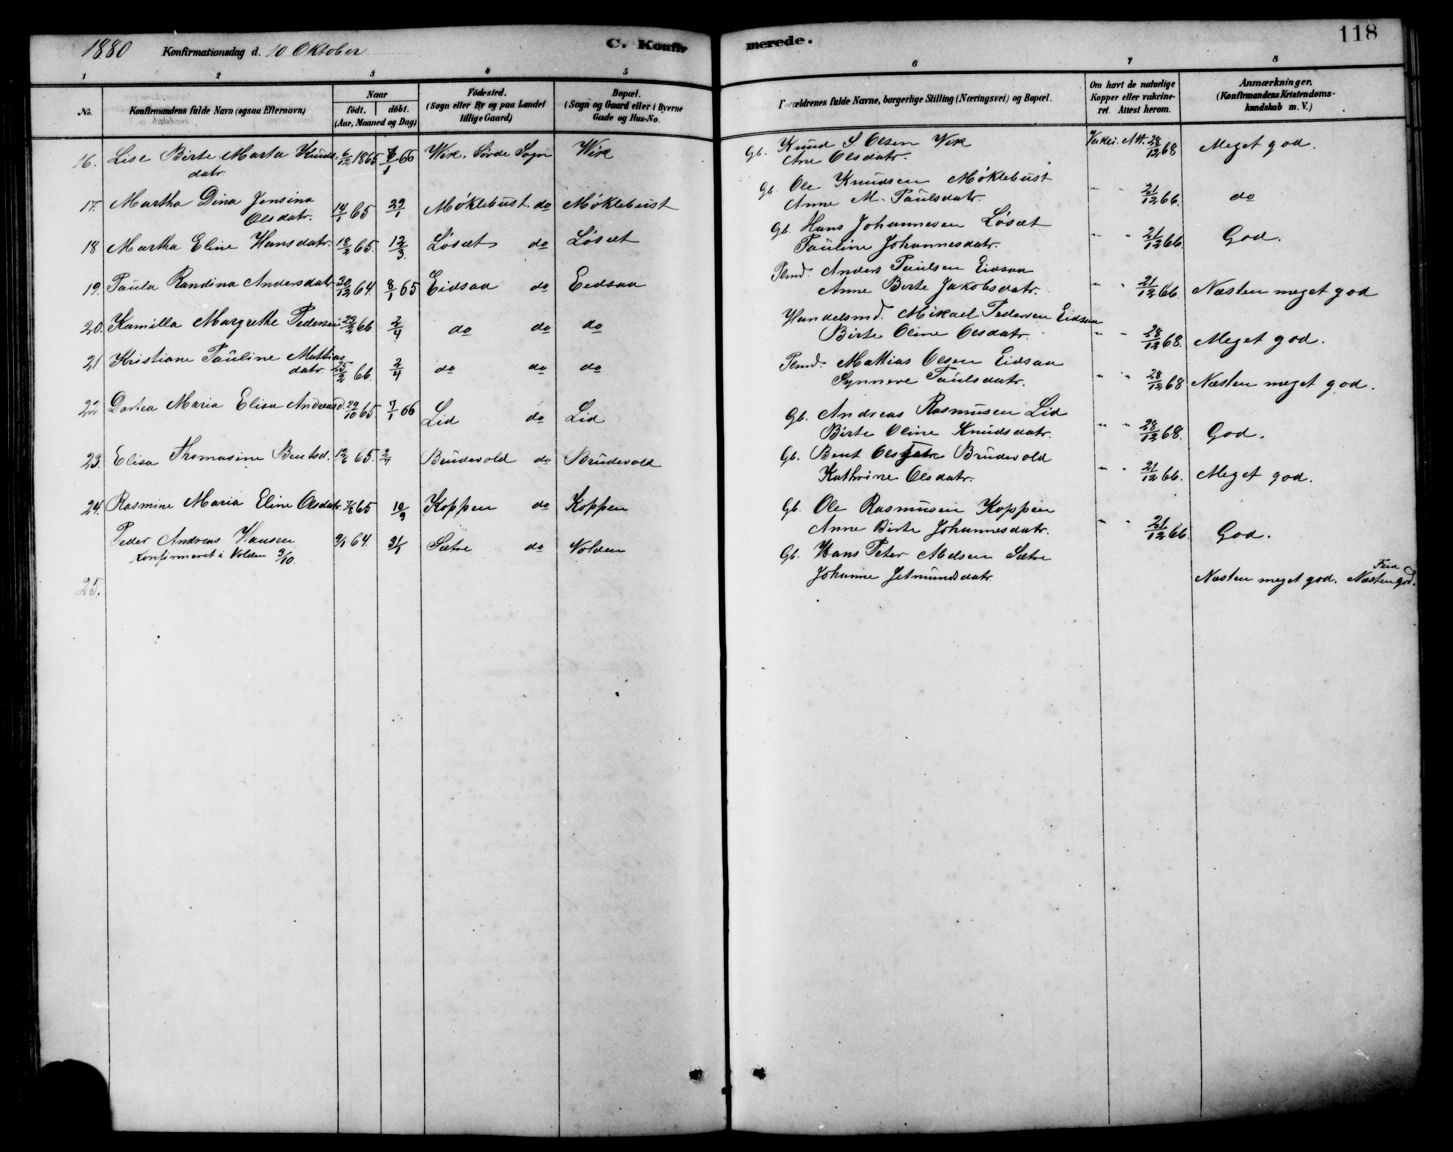 1880 Konfirmationsdag d. 10 Oktober C. Konfir merede. 118
1 2 3 4 5 6 7 8
No. Konfirmandens fulde Navn (ogsaa Efternavn) Naar født. døbt. (Aar, Maaned og Dag) Fødested. (Sogn eller By og paa Landet tillige Gaard) Bopæl. (Sogn og Gaard eller i Byerne Gade og Hus-No. Forældrenes fulde Navne, borgerlige Stilling (Næringsvei) og Bopæl. Om havt de naturlige Kopper eller vakcineret. Attest herom. Anmærkninger. (Konfirmandens Kristendomskundskab m. V.)
16. Lise Birte Marta Knuds- 1865 66 Wik, Sørde Sogn Wik Gb. Knud S Olsen Wik 28/12 68 Meget god.
datr. Ane Olsdatr.
17. Martha Dina Jensine 14/1 65 29/1 Møklebust do Møklebust Gb. Ole Knudsen Møklebust " " 21/12 66. do
Olsdatr. Anne M. Paulsdatr.
18 Martha Eline Hansdatr. 18/2 65. 12/3. Løset do Løset Gb. Hans Johannesen Løset " " 21/12 66 God.
Pauline Johannesdatr.
19. Paula Randina Andersdatr 20/12 64. 8/1 65 Eidsaa do Eidsaa Anders Paulsen Eidsaa " " 21/12 66 Næsten meget god
Anne Birte Jakobsdatr.
20. Kamilla Margrethe Pedersen 66 2/4 do do do Handelsmd. Mikael Pedersen Eidsaa " " 28/12 68. Meget god.
Birte Oline Olsdatr.
21 Kristiane Pauline Mattias 66 2/4 do do do Mattias Olsen Eidsaa " " 28/12 68 Næsten meget god.
datr. Synneve Paulsdatr.
22. Dortea Maria Elisa Andreasd 29/10 65 7/1 66 Lid do Lid Gb. Andreas Rasmusen Lid " " 28/12 68. God.
Birte Oline Knudsdatr.
23. Elisa Thomasine Bentsd. 65. Brudevold do Brudevold Gb. Bent Brudevold " " 21/12 66. Meget god.
Kathrine Olsdatr.
24. Rasmine Maria Eline Olsdatr. 65 10/9 Koppen do Koppen Gb. Ole Rasmusen Koppen " " 21/12 66. God.
Anne Birte Johannesdatr.
25. Peder Andreas Hansen 64. Sætre do Volden Gb. Hans Peter Sætre Næsten meget god. Næsten god.
Konfirmeret i Volden 3/10. Johanne Jetmundsdatr